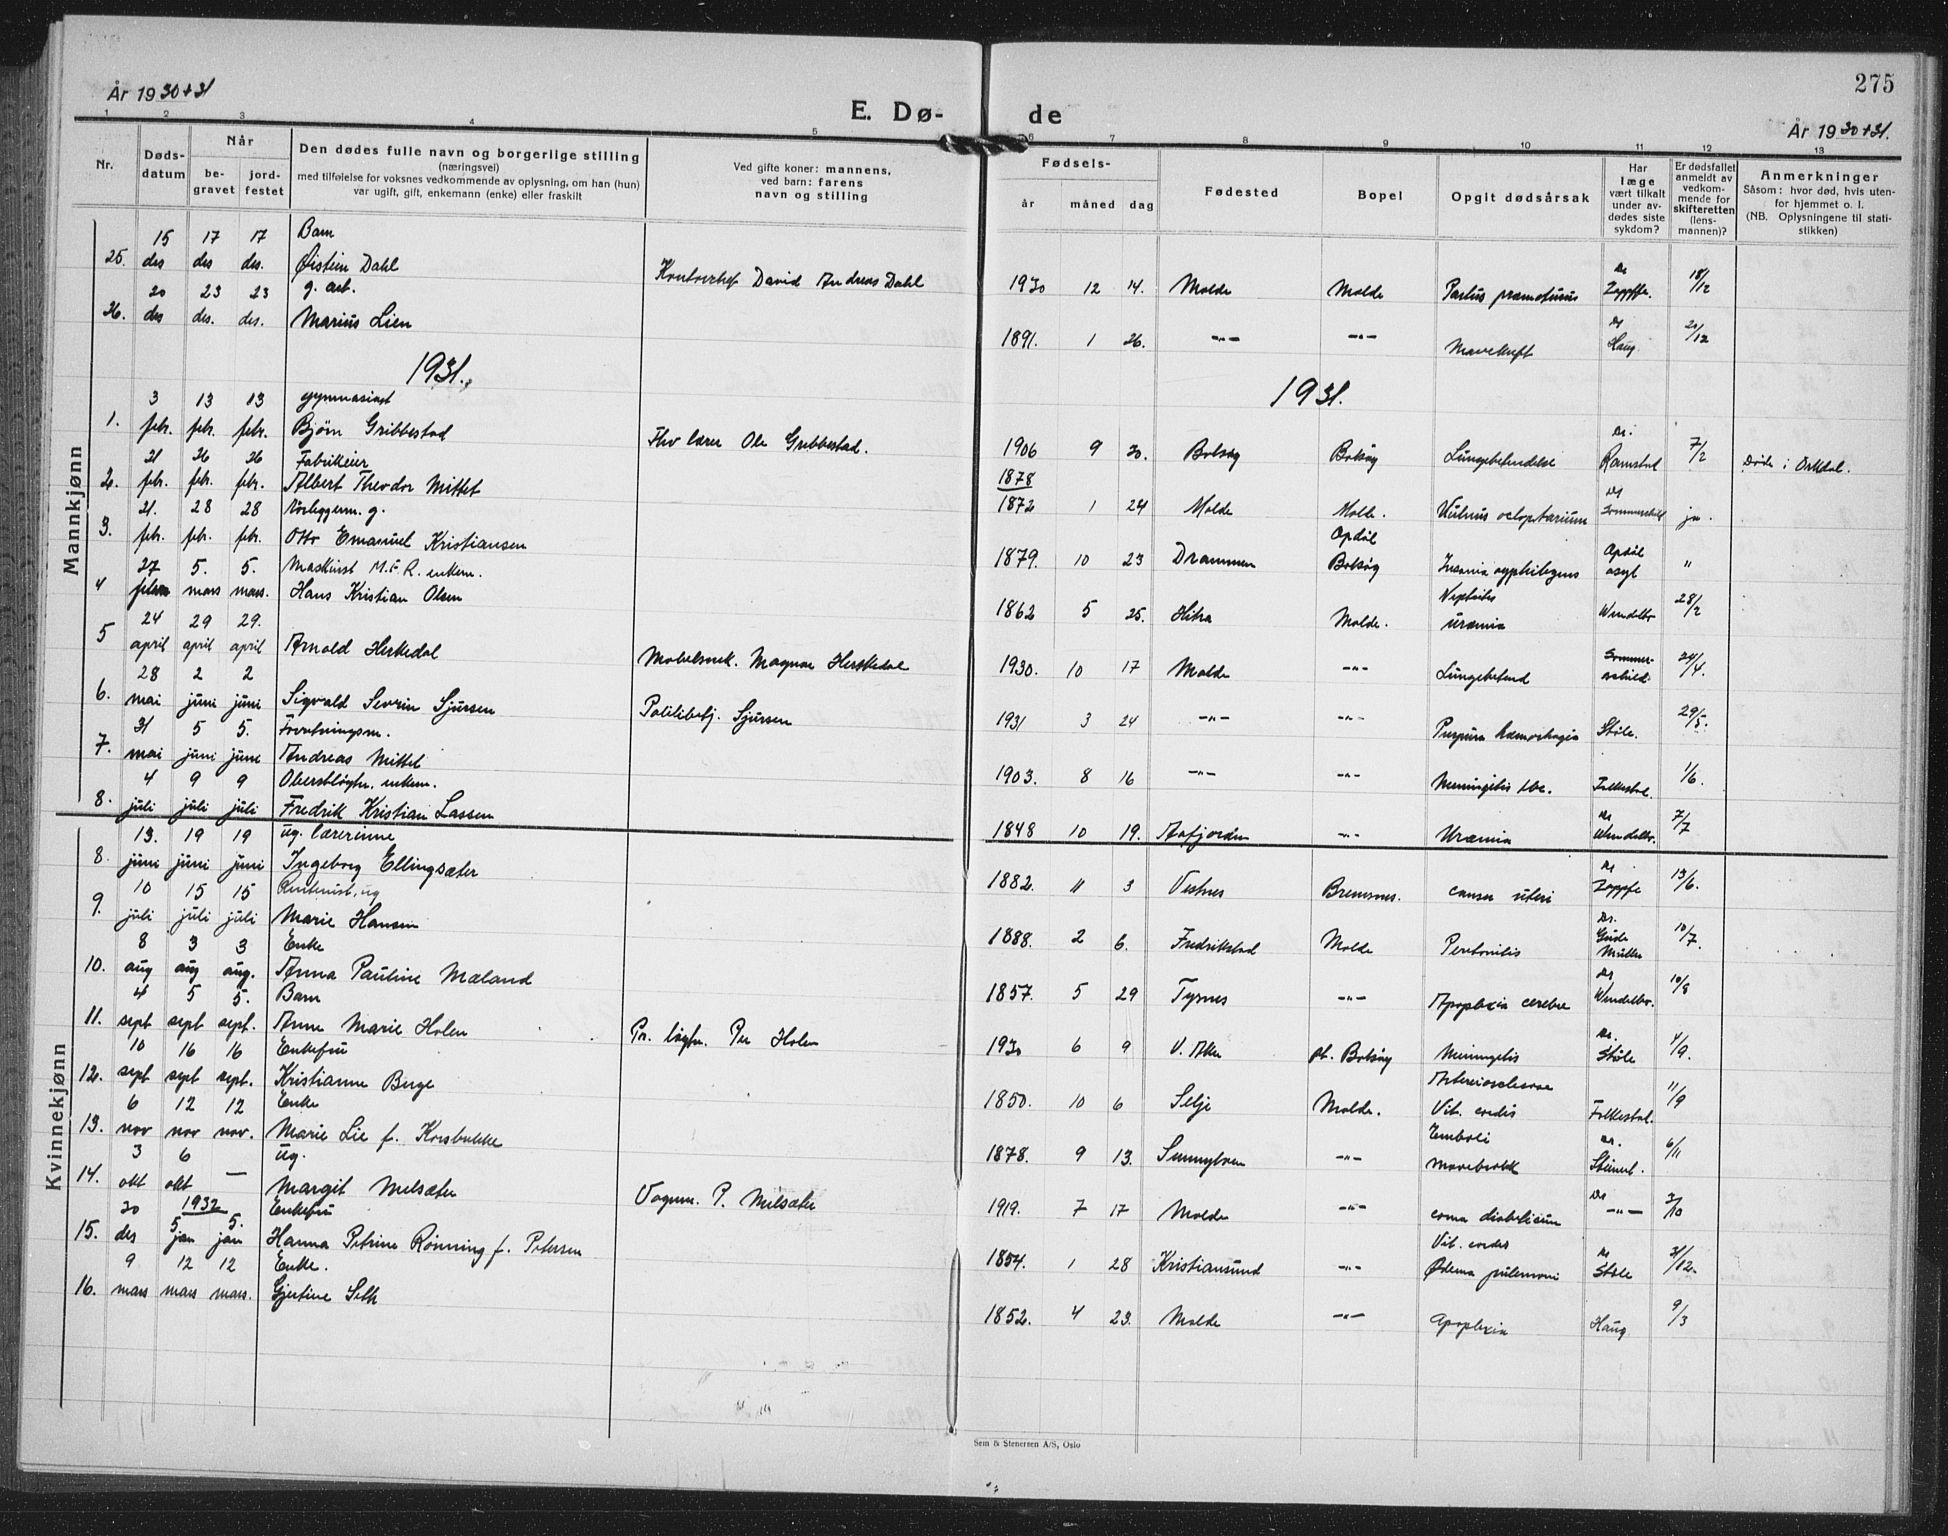 275
År 1930+31
E. Dø- de
År 1930+31.
1 2 3 4 5 6 7 8 9 10 11 12 13
Nr.
Døds-
datum
Når
be-
gravet
jord-
festet
Den dødes fulle navn og borgerlige stilling
(næringsvei)
med tilføielse for voksnes vedkommende av oplysning, om han (hun)
var ugift, gift, enkemann (enke) eller fraskilt
Ved gifte koner: mannens,
ved barn: farens
navn og stilling
Fødsels-
år måned dag
Fødested
Bopel
Opgit dødsårsak
Har
læge
vært tilkalt
under av-
dødes siste
sykdom?
Er dødsfallet
anmeldt av
vedkom-
mende for
skifteretten
(lens-
mannen)?
Anmerkninger
Såsom: hvor død, hvis uten-
for hjemmet o. l.
(NB. Oplysningene til stati-
stikken)
Mannkjønn
15 17 17 Barn
25. des des des. Øistein Dahl Kontorchef David Andreas Dahl 1930 12 14. Molde Molde Partus præmaturus Dr Zappffe. 18/12
20 23 23 g. arb.
26. des des. des. Marius Lien 1891. 1 26. -"- -"- Mavekreft Dr Haug 20/12
1931. 1931.
3 13 13 gymnasiast
1. febr. febr. febr. Bjørn Gribbestad Fhv lærer Ole Gribbestad. 1906 9 30. Bolsøy Bolsøy Lungebetendelse Dr. Ramstad 7/2 Døde i Orkdal.
21 26 26 Fabrikeier 1878
2. febr. febr. febr. Albert Theodor Mittet 1872 1 24 Molde Molde. Vulnus scloptarium Dr Sommerschild ja.
21. 28 28 Rørleggerm. g. Opdøl
3. febr. febr. febr. Otto Emanuel Kristiansen 1879. 10 23 Drammen Bolsøy Insania syphilogenes Opdøl asyl "
27 5. 5. Maskinist M.F.R. enkem. Nephritis
4 febr mars mars. Hans Kristian Olsen 1862 5 25. Hitra Molde. uræmia Wendelbo 28/2
24 29 29.
5 april april april Arnold Herskedal Møbelsnek. Magnar Herskedal 1930. 10 17 Molde -"- Lungebetend Sommerschild. 24/4.
28 2 2
6. mai juni juni Sigvald Severin Sjursen Politibetj. Sjursen 1931 3 24 -"- -"- Purpura hæmorhagia Støle. 29/5.
31 5 5. Forretningsm.
7. mai juni juni Andreas Mittet 1903. 8 16 -"- -"- Meningitis tbc. Folkestad. 1/6.
4 9 9 Oberstløytn. enkem.
8. juli juli juli Fredrik Kristian Lassen 1848 10 19. Aafjorden -"- Uræmia Dr Wendelbo. 7/7
Kvinnekjønn
13. 19 19 ug. lærerinne
8. juni juni juni Ingeborg Ellingsæter 1882. 11 3 Vestnes Bremsnes. cancer uteri Dr Zappfe 13/6.
10 15 15 Rentenist, ug
9. juli juli juli Marie Hansen 1888. 2 6. Fredrikstad Molde Peritonitis Dr. Gude Müller 10/7.
8 3 3 Enke
10. aug aug aug. Anna Pauline Mæland 1857. 5 29 Tysnes -"- Apoplexia cerebre Dr Wendelbo. 10/8
4 5 5. Barn
11. sept sept sept. Anne Marie Holen Pr. løytn. Per Holen 1930 6 9 V. Aker pt. Bolsøy Meningitis Dr. Støle 4/9.
10 16 16 Enkefru Arteriosclerose
12. sept sept sept. Kristianne Berge 1850. 10 6 Selje Molde. Vit. cordis Folkestad. 11/9
6 12 12 Enke Emboli
13. nov nov nov. Marie Lie f. Korsbakke 1878. 9 13. Sunnylven -"- Mavebrokk Dr. Steinert. 6/11
3 6 — ug.
14. okt okt Margit Melsæter Vognm. P. Melsæter 1919. 7 17 Molde -"- coma diabeticum Dr -"- 3/10
30 1932 Enkefru Vit. cordis
15. des 5 jan 5. jan Hanna Petrine Rønning f. Petersen 1854. 1 28 Kristiansund -"- Ødema pulmoni Dr Støle 31/12.
9 12 12 Enke.
16. mars mars mars. Gjertine Seth 1852. 4 23. Molde -"- Apoplexia Haug 9/3
Sem & Stenersen A/S, Oslo